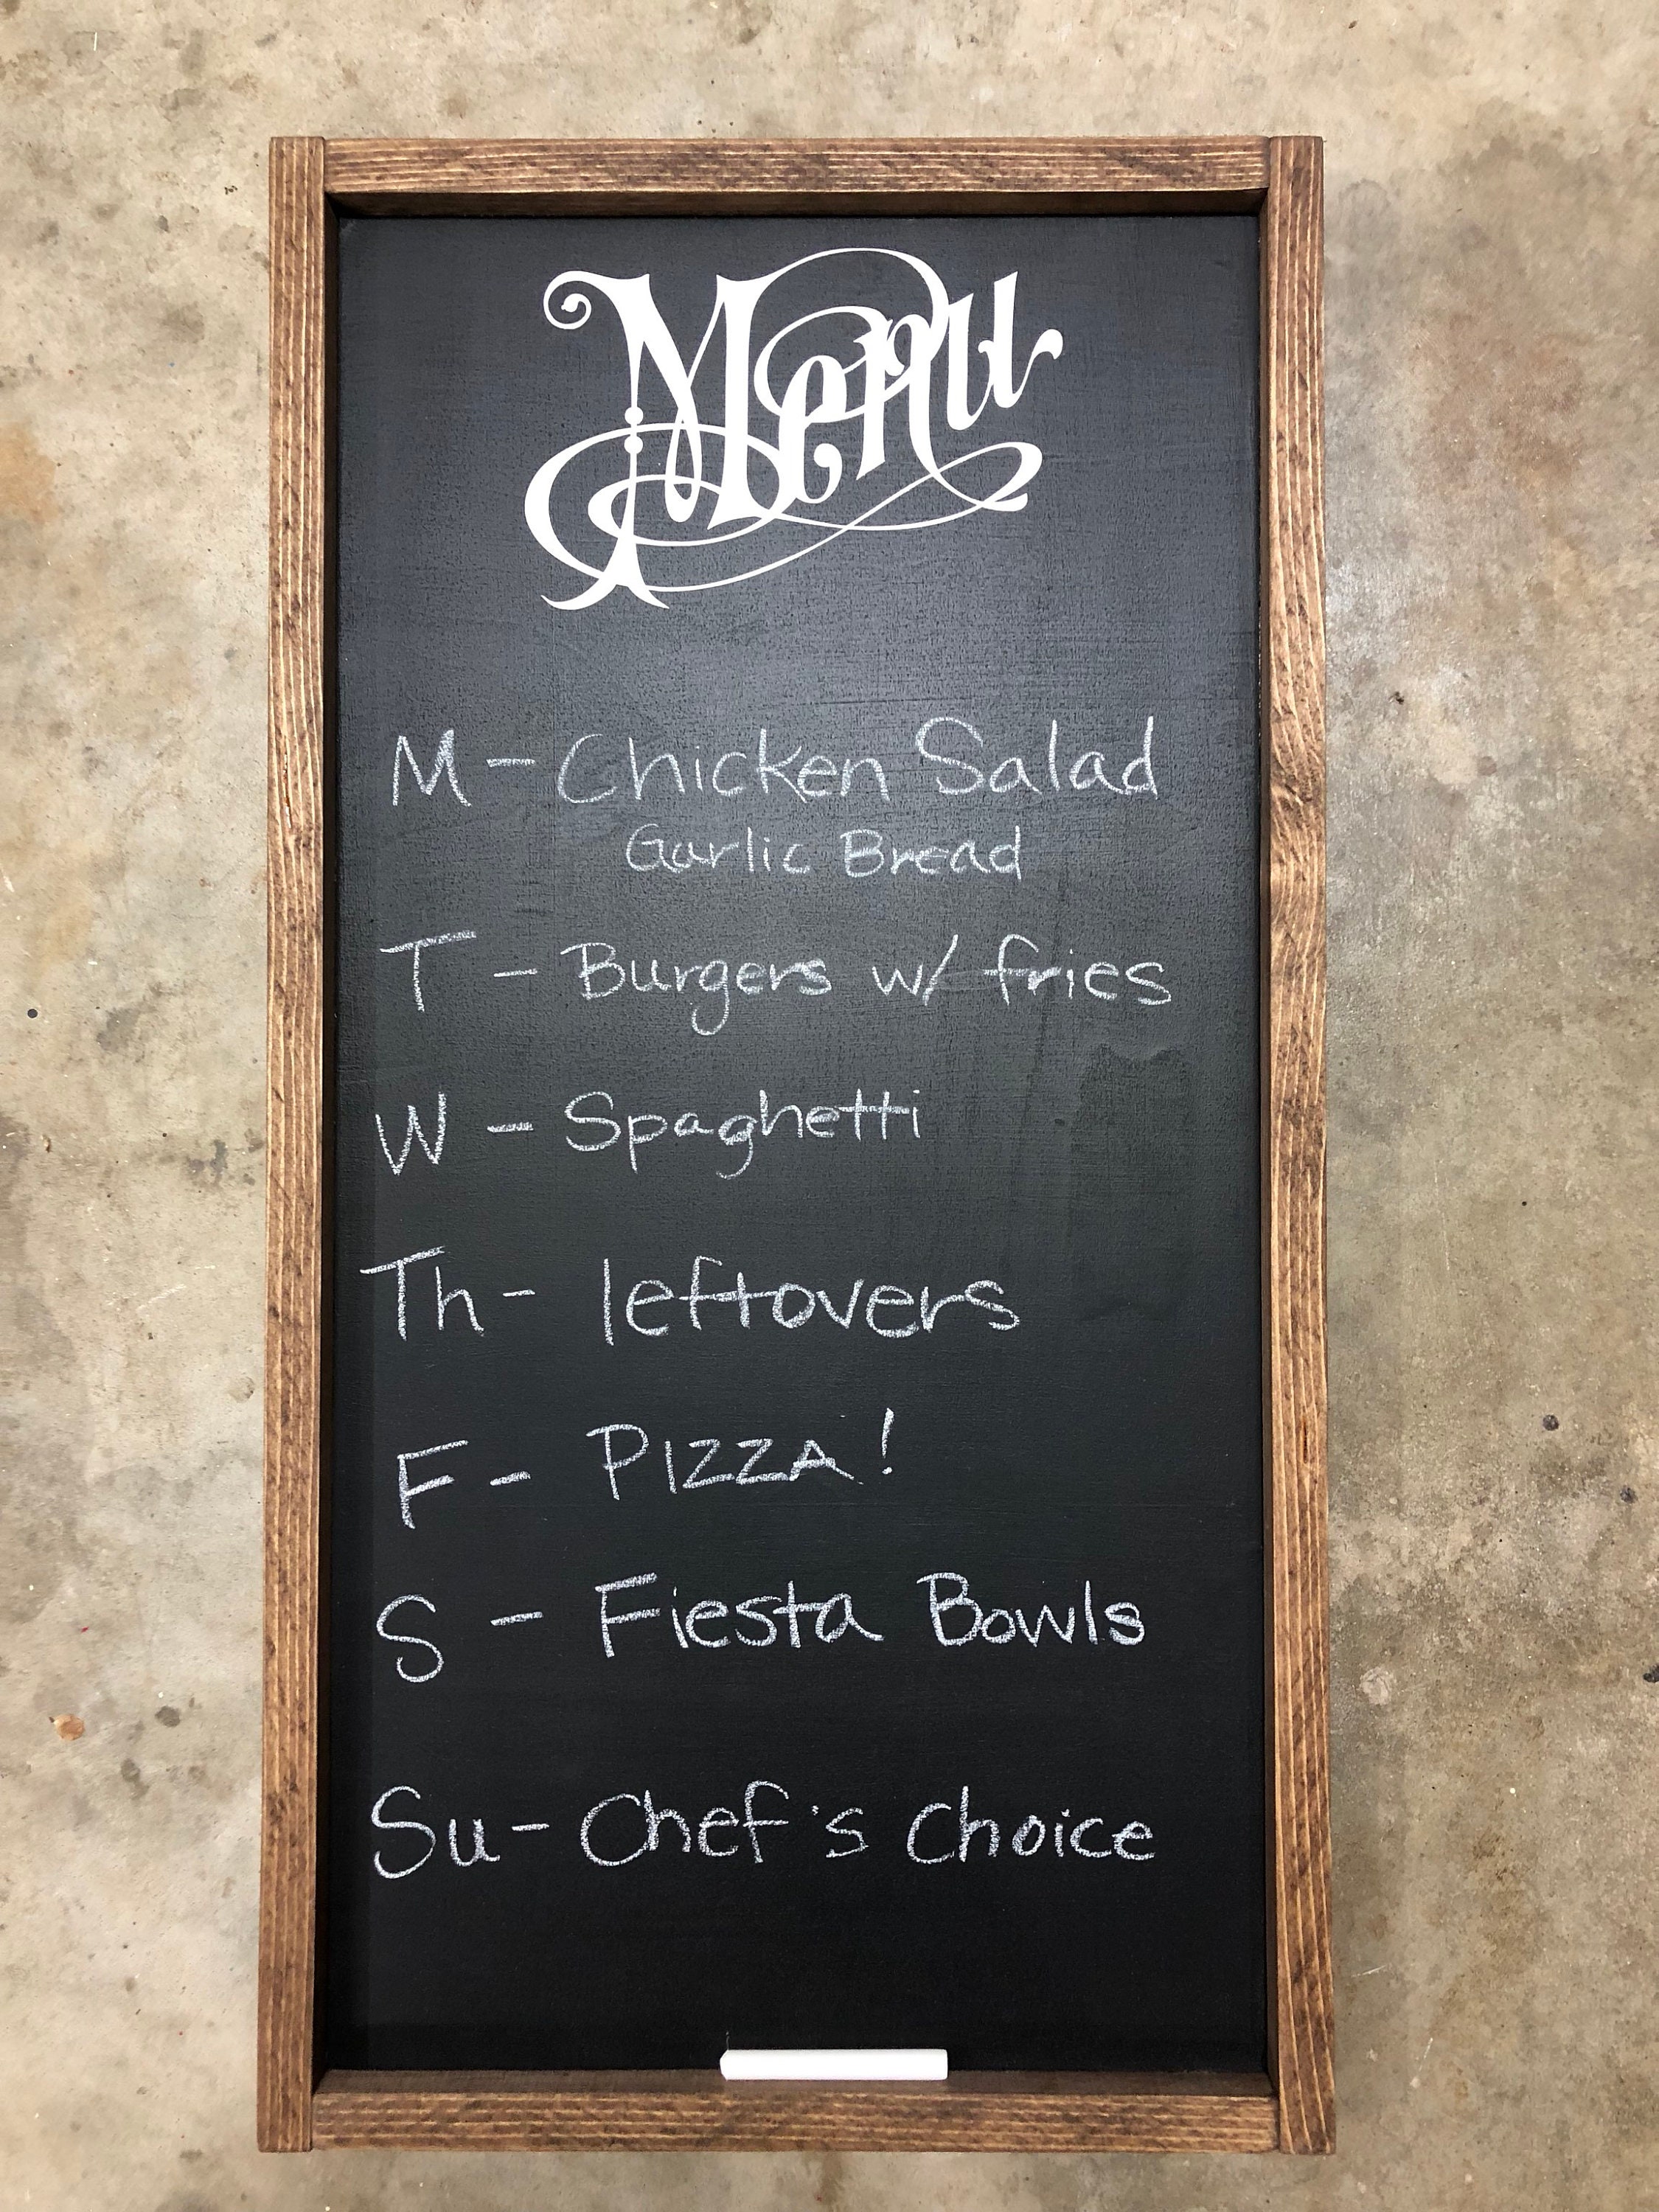 Menu
M - Chicken Salad
Garlic Bread
T - Burgers w/ fries
W - Spaghetti
Th - leftovers
F - PIZZA!
S - Fiesta Bowls
Su - Chef's Choice